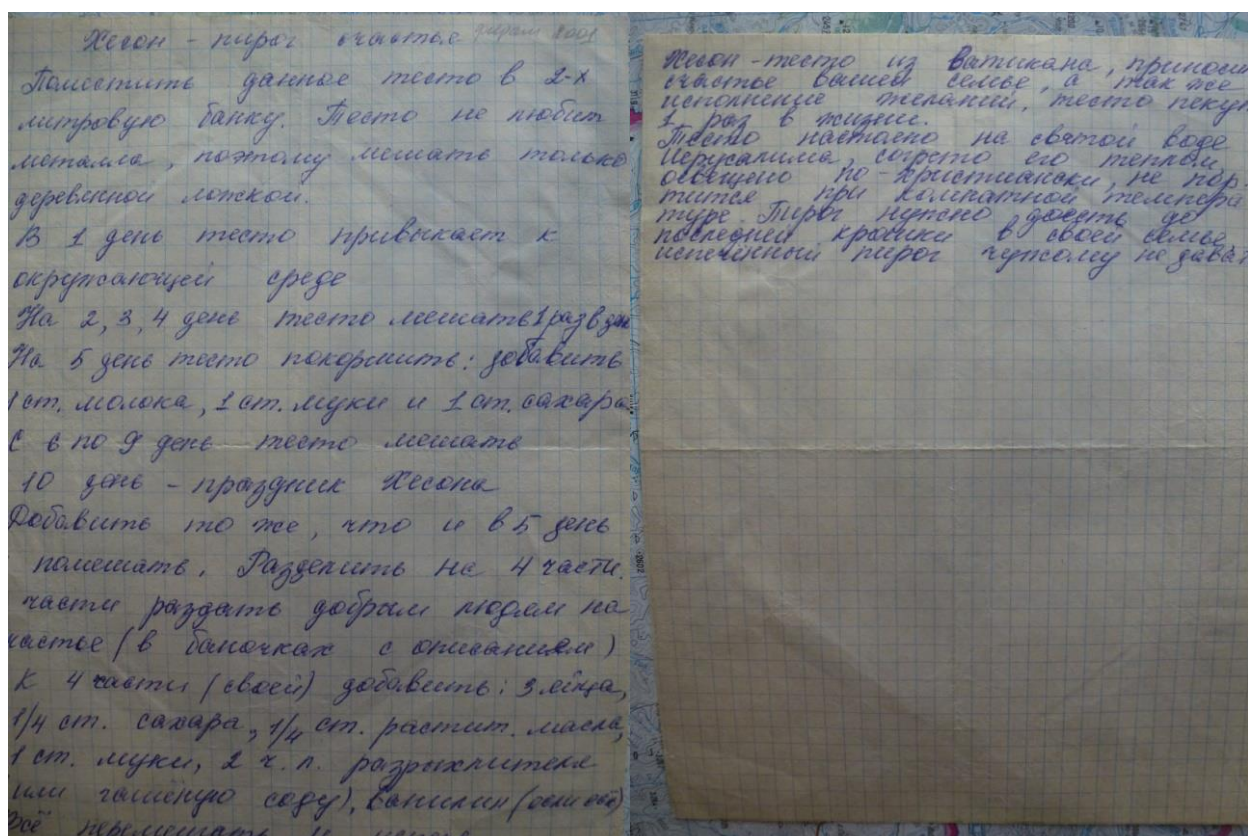 Хесон - пирог счастья февраль 2009
Поместить данное тесто в 2-х
литровую банку. Тесто не любит
металла, поэтому мешать только
деревянной ложкой.
В 1 день тесто привыкает к
окружающей среде
На 2, 3, 4 день тесто мешать 1 раз в ден
На 5 день тесто покормить: добавить
1 ст. молока, 1 ст. муки и 1 ст. сахара
С 6 по 9 день тесто мешать
10 день - праздник Хесона
Добавить то же, что и в 5 день
помешать. Разделить на 4 части.
части раздать добрым людям на
частье (в баночках с описанием)
К 4 части (своей) добавить: 3 яйца,
1/4 ст. сахара, 1/4 ст. растит. масла,
1 ст. муки, 2 ч. л. разрыхлителя
или гашёную соду), ванилин
всё перемешать и
Хесон - тесто из Ватикана, приноси
счастье вашей семье, а так же
исполнение желаний. тесто пекут
1 раз в жизни.
Тесто настояно на святой воде
Иерусалима, согрето его теплом,
освещено по-христиански, не пор-
тится при комнатной темпера
туре. Пирог нужно доесть до
последней крошки в своей семье
испечённый пирог чужому не дават